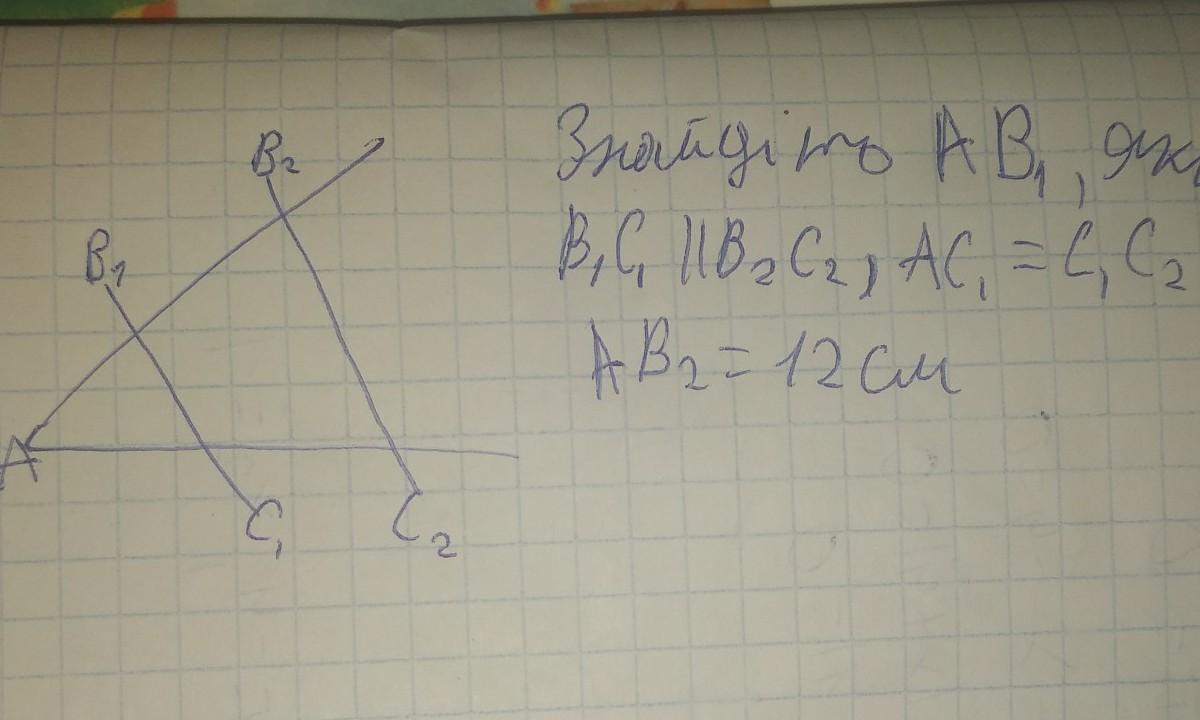 B₂
B₁
A
C₁
C₂
Знайдіть AB₁,
B₁C₁ || B₂C₂, AC₁ = C₁C₂
AB₂ = 12 см